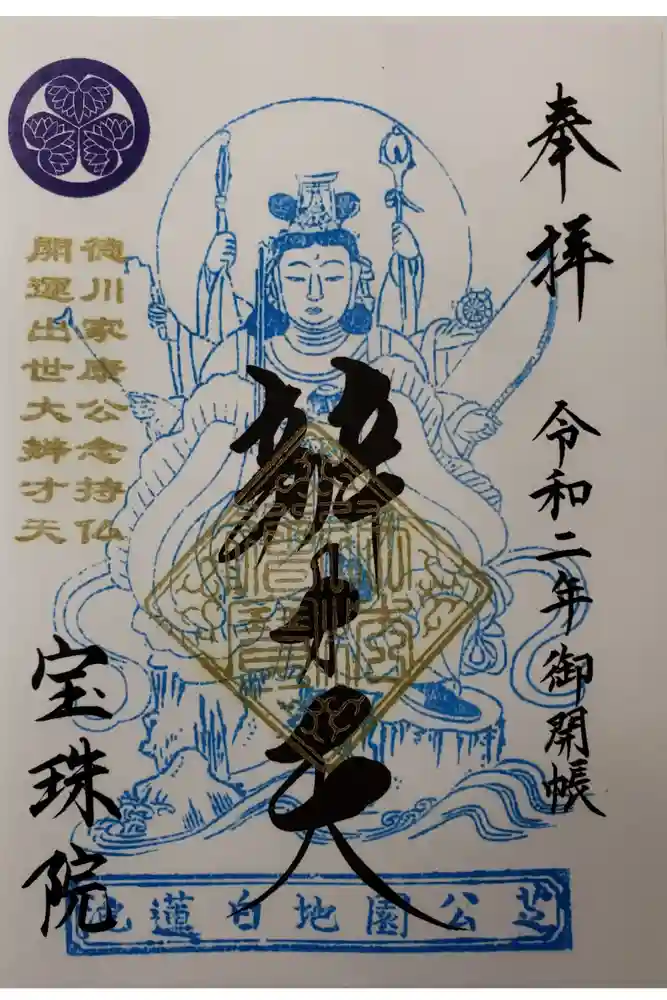 奉拝 令和二年御開帳
辨才天
徳川家康公念持仏
開運出世大辨才天
宝珠院
芝公園地白蓮池